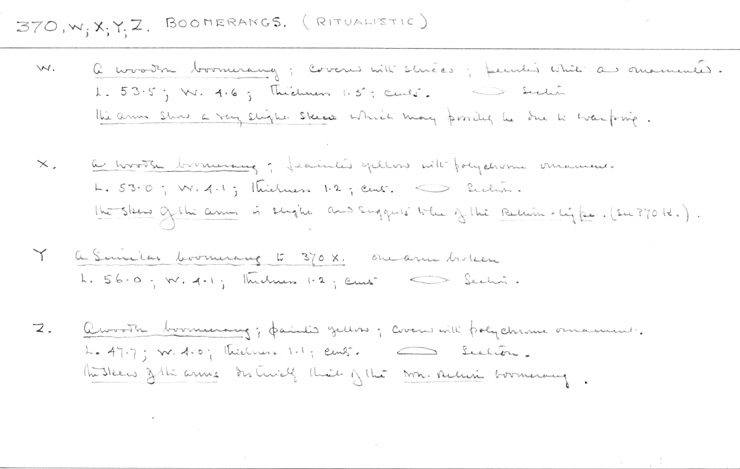 370, W; X; Y; Z. BOOMERANGS. (RITUALISTIC)
W. A wooden boomerang; covered with stucco; painted white and ornamented.
L. 53·5; W. 4·6; Thickness 1·5; cents. Section
The arms show a very slight skew which may possibly be due to warping.
X. A wooden boomerang; painted yellow with polychrome ornament.
L. 53·0; W. 4·1; Thickness 1·2; cents. Section.
The skew of the arms is slight and suggests to be of the Return-type. (See 370 K.).
Y A Similar boomerang to 370 X. one arm broken
L. 56·0; W. 4·1; Thickness 1·2; cents Section.
Z. A wooden boomerang; painted yellow; covered with polychrome ornament.
L. 47·7; W. 4·0; Thickness 1·1; cents. Section.
The skew of the arms distinctly that of the non-Return boomerang.